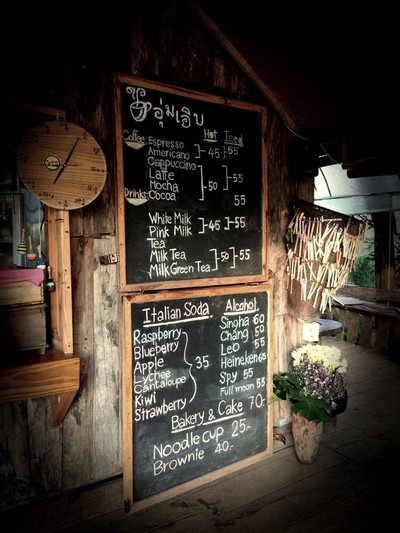 อุ่มเอิบ
Coffee: Hot Iced
Espresso
Americano 45 55
Cappuccino
Latte
Mocha 50 55
Cocoa 55
Drinks
White Milk
Pink Milk 45 55
Tea
Milk Tea 50 55
Milk Green Tea
Italian Soda
Raspberry
Blueberry
Apple
Lychee 35
Cantaloupe
Kiwi
Strawberry
Alcohol
Singha 60
Chang 50
Leo 55
Heineken 65
Spy 55
Full moon 55
Bakery & Cake 70.-
Noodle cup 25.-
Brownie 40.-